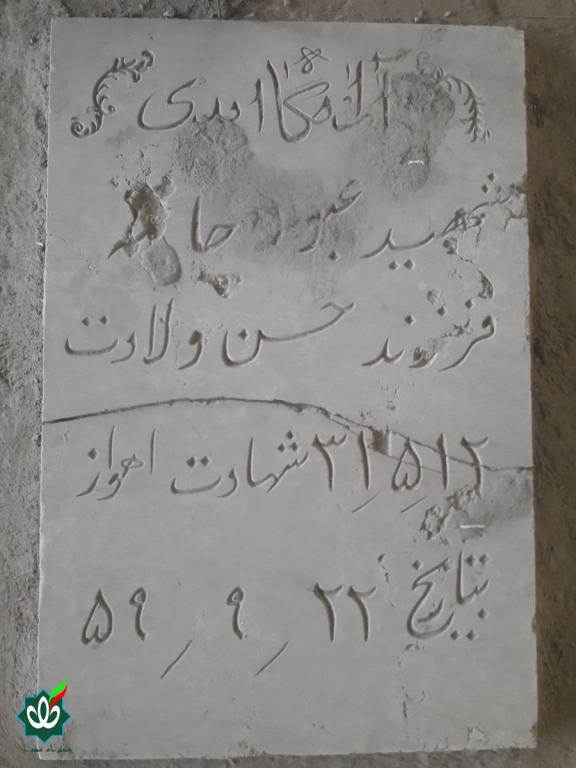 آرامگاه ابدی
شهید عبود
فرزند حسن ولادت
۱۲ ر ۵ ر ۱۳ شهادت اهواز
بتاریخ ۲۲ ر ۹ ر ۵۹